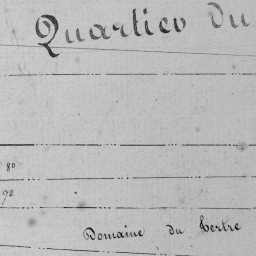 Quartier du
80
90
Domaine du Tertre